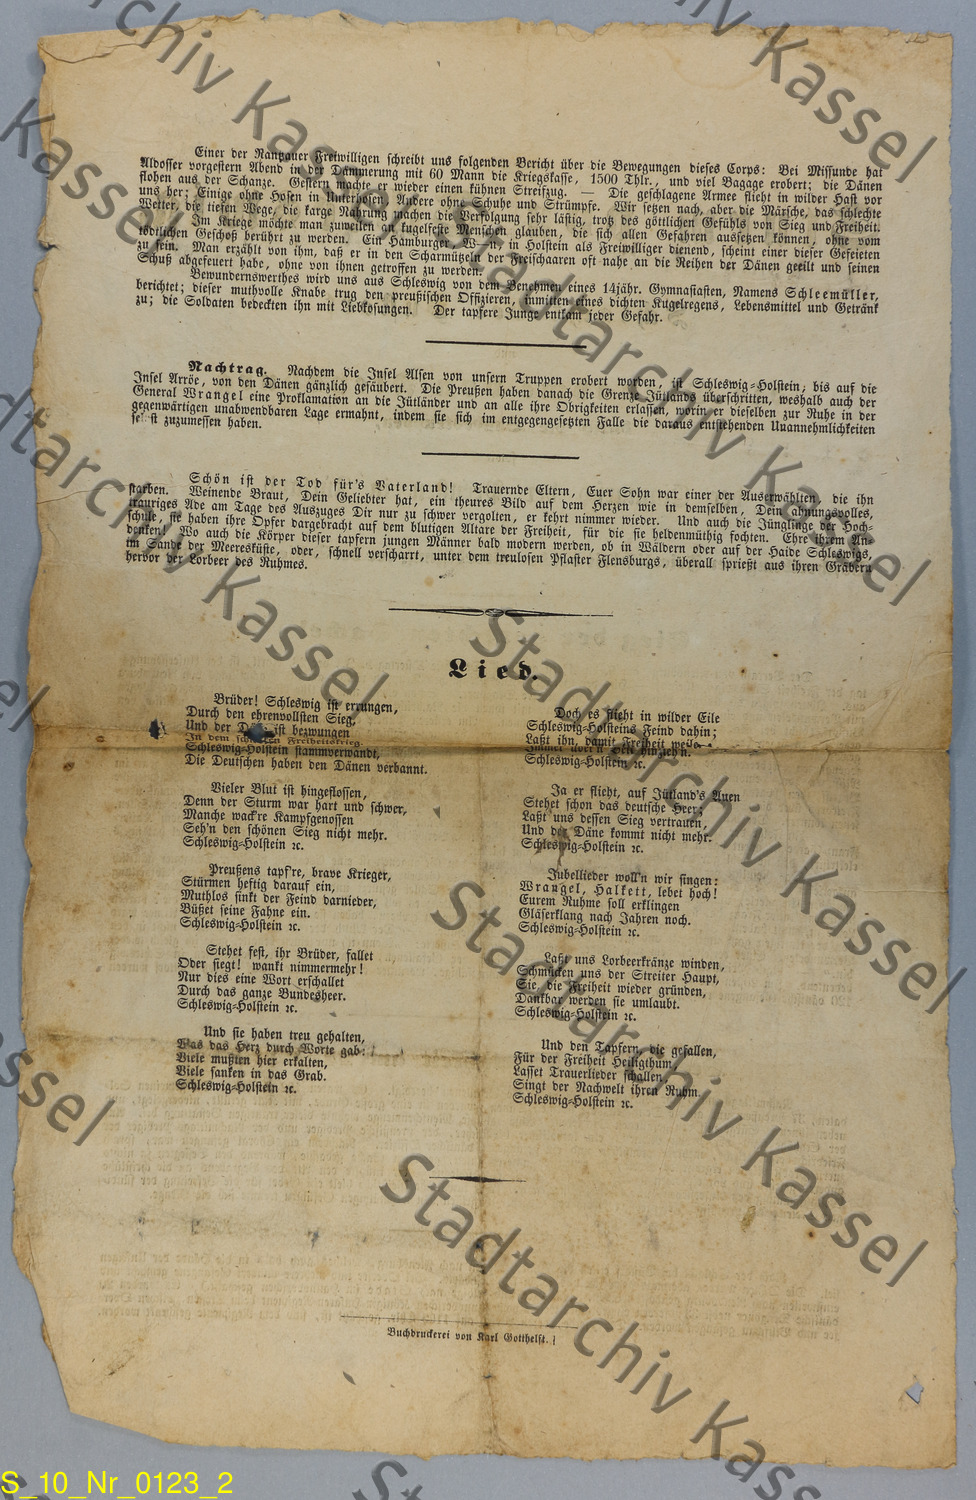 Einer der Rantzauer Freiwilligen schreibt uns folgenden Bericht über die Bewegungen dieses Corps: Bei Missunde hat
Aldosser vorgestern Abend in der Dämmerung mit 60 Mann die Kriegskasse, 1500 Thlr., und viel Bagage erobert; die Dänen
flohen aus der Schanze. Gestern machte er wieder einen kühnen Streifzug. — Die geschlagene Armee flieht in wilder Hast vor
uns her; Einige ohne Hosen in Unterhosen, Andere ohne Schuhe und Strümpfe. Wir setzen nach, aber die Märsche, das schlechte
Wetter, die tiefen Wege, die karge Nahrung machen die Verfolgung sehr lästig, trotz des göttlichen Gefühls von Sieg und Freiheit.
Im Kriege möchte man zuweilen an kugelfeste Menschen glauben, die sich allen Gefahren aussetzen können, ohne vom
tödtlichen Geschoß berührt zu werden. Ein Hamburger, W—n, in Holstein als Freiwilliger dienend, scheint einer dieser Gefeieten
zu sein. Man erzählt von ihm, daß er in den Scharmützeln der Freischaaren oft nahe an die Reihen der Dänen geeilt und seinen
Schuß abgefeuert habe, ohne von ihnen getroffen zu werden.
Bewundernswerthes wird uns aus Schleswig von dem Benehmen eines 14jähr. Gymnasiasten, Namens Schleemüller,
berichtet; dieser muthvolle Knabe trug den preußischen Offizieren, inmitten eines dichten Kugelregens, Lebensmittel und Getränk
zu; die Soldaten bedeckten ihn mit Liebkosungen. Der tapfere Junge entkam jeder Gefahr.
Nachtrag. Nachdem die Insel Alsen von unsern Truppen erobert worden, ist Schleswig-Holstein, bis auf die
Insel Arröe, von den Dänen gänzlich gesäubert. Die Preußen haben danach die Grenze Jütlands überschritten, weshalb auch der
General Wrangel eine Proklamation an die Jütländer und an alle ihre Obrigkeiten erlassen, worin er dieselben zur Ruhe in der
gegenwärtigen unabwendbaren Lage ermahnt, indem sie sich im entgegengesetzten Falle die daraus entstehenden Unannehmlichkeiten
selbst zuzumessen haben.
Schön ist der Tod für's Vaterland! Trauernde Eltern, Euer Sohn war einer der Auserwählten, die ihn
starben. Weinende Braut, Dein Geliebter hat, ein theures Bild auf dem Herzen wie in demselben, Dein ahnungsvolles,
trauriges Ade am Tage des Auszuges Dir nur zu schwer vergolten, er kehrt nimmer wieder. Und auch die Jünglinge der Hoch-
schule, sie haben ihre Opfer dargebracht auf dem blutigen Altare der Freiheit, für die sie heldenmüthig fochten. Ehre ihrem An-
denken! Wo auch die Körper dieser tapfern jungen Männer bald modern werden, ob in Wäldern oder auf der Haide Schleswigs,
im Sande der Meeresküste, oder, schnell verscharrt, unter dem treulosen Pflaster Flensburgs, überall sprießt aus ihren Gräbern
hervor der Lorbeer des Ruhmes.
Lied.
Brüder! Schleswig ist errungen,
Durch den ehrenvollsten Sieg,
Und der Däne ist bezwungen
In dem schönen Freiheitskrieg.
Schleswig-Holstein stammverwandt,
Die Deutschen haben den Dänen verbannt.
Vieler Blut ist hingeflossen,
Denn der Sturm war hart und schwer,
Manche wack're Kampfgenossen
Seh'n den schönen Sieg nicht mehr.
Schleswig-Holstein ꝛc.
Preußens tapf're, brave Krieger,
Stürmen heftig darauf ein,
Muthlos sinkt der Feind darnieder,
Büßet seine Fahne ein.
Schleswig-Holstein ꝛc.
Stehet fest, ihr Brüder, fallet
Oder siegt! wankt nimmermehr!
Nur dies eine Wort erschallet
Durch das ganze Bundesheer.
Schleswig-Holstein ꝛc.
Und sie haben treu gehalten,
Was das Herz durch Worte gab;
Viele mußten hier erkalten,
Viele sanken in das Grab.
Schleswig-Holstein ꝛc.
Doch es flieht in wilder Eile
Schleswig-Holsteins Feind dahin;
Laßt ihn, damit Freiheit weile
Immer über'n Belt hinzieh'n.
Schleswig-Holstein ꝛc.
Ja er flieht, auf Jütland's Auen
Stehet schon das deutsche Heer;
Laßt uns dessen Sieg vertrauen,
Und der Däne kommt nicht mehr.
Schleswig-Holstein ꝛc.
Jubellieder woll'n wir singen:
Wrangel, Halkett, lebet hoch!
Eurem Ruhme soll erklingen
Gläserklang nach Jahren noch.
Schleswig-Holstein ꝛc.
Laßt uns Lorbeerkränze winden,
Schmücken uns der Streiter Haupt,
Sie, die Freiheit wieder gründen,
Dankbar werden sie umlaubt.
Schleswig-Holstein ꝛc.
Und den Tapfern, die gefallen,
Für der Freiheit Heiligthum,
Lasset Trauerlieder schallen,
Singt der Nachwelt ihren Ruhm.
Schleswig-Holstein ꝛc.
Buchdruckerei von Karl Gotthelft.
Stadtarchiv Kassel
S_10_Nr_0123_2